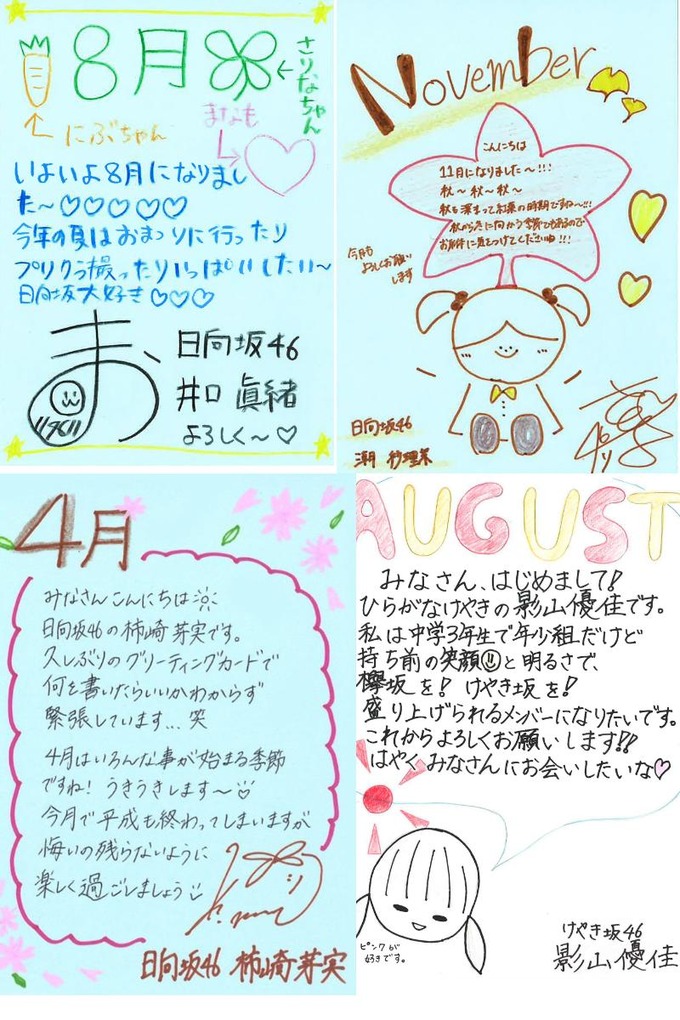 8月
さりなちゃん
にぶちゃん
まなも
いよいよ8月になりまし
た〜♡♡♡♡♡
今年の夏はおまつりに行ったり
プリクラ撮ったりいっぱいしたい〜
日向坂大好き♡♡♡
日向坂46
井口 眞緒
よろしく〜♡
November
こんにちは
11月になりました〜!!!
秋〜秋〜秋〜
秋も深まって紅葉の時期ですね〜!!!
秋から冬に向かう季節でもあるので
お体に気をつけてくださいね!!!
今月も
よろしくお願い
します
日向坂46
潮 紗理菜
4月
みなさんこんにちは
日向坂46の柿崎芽実です。
久しぶりのグリーティングカードで
何を書いたらいいかわからず
緊張しています…笑
4月はいろんな事が始まる季節
ですね! うきうきします〜
今月で平成も終わってしまいますが
悔いの残らないように
楽しく過ごしましょう
日向坂46 柿崎芽実
AUGUST
みなさん、はじめまして!
ひらがなけやきの影山優佳です。
私は中学3年生で年少組だけど
持ち前の笑顔と明るさで、
欅坂を! けやき坂を!
盛り上げられるメンバーになりたいです。
これからよろしくお願いします!!
はやくみなさんにお会いしたいな♡
ピンクが
好きです。
けやき坂46
影山優佳